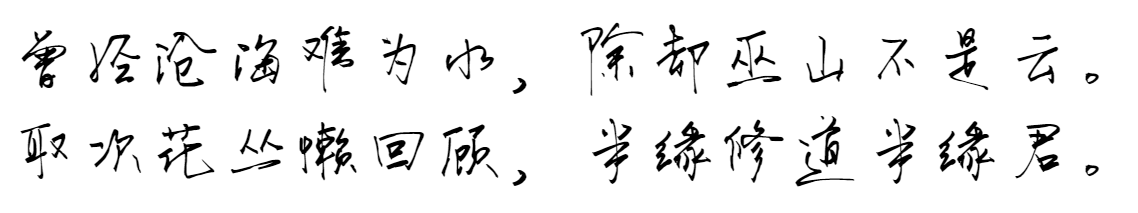 曾经沧海难为水，除却巫山不是云。
取次花丛懒回顾，半缘修道半缘君。